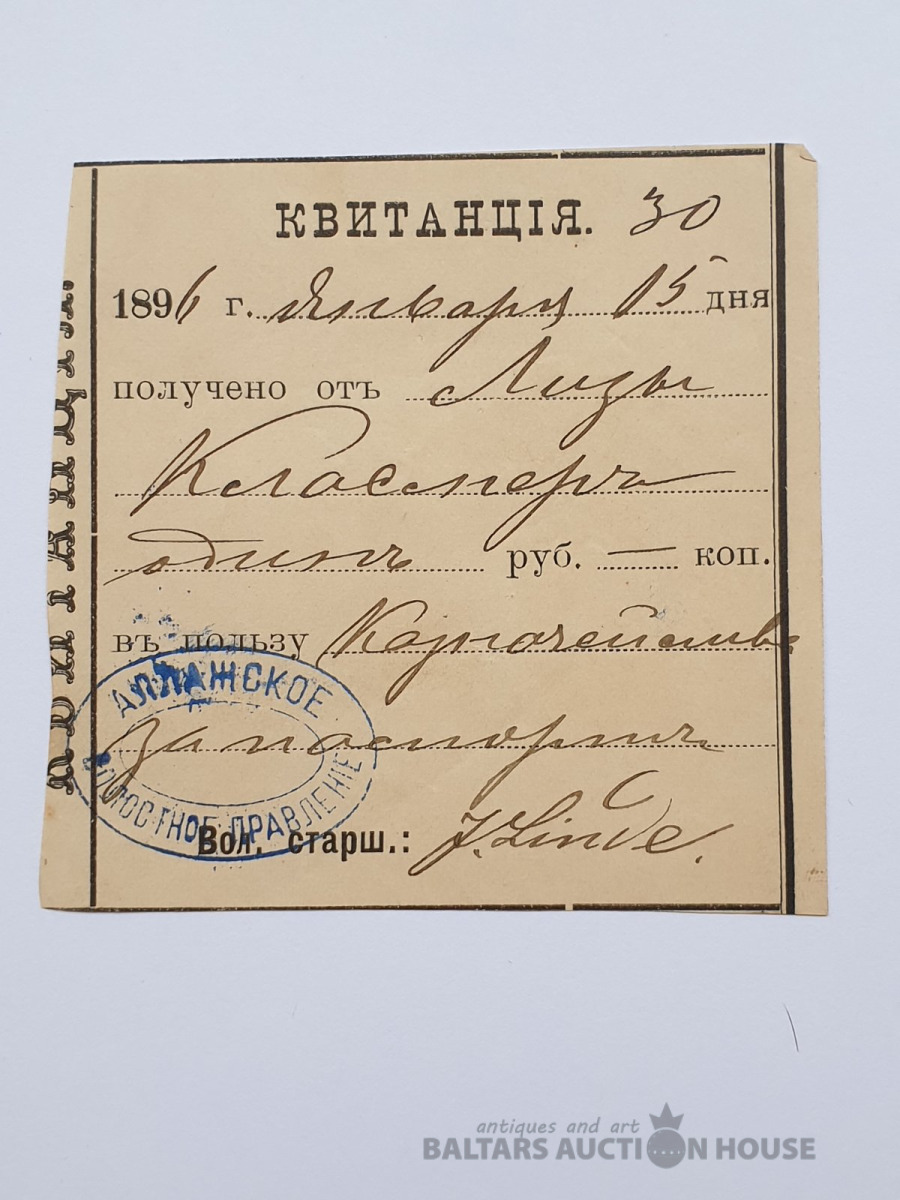 КВИТАНЦІЯ. 30
1896 г. Января 15 дня
получено отъ Лизы
Класперъ
одинъ руб. — коп.
въ пользу Казначейства
за паспортъ
АЛЛАЖСКОЕ
ВОЛОСТНОЕ ПРАВЛЕНІЕ
Вол. старш.: J. Linde.
КВИТАНЦІЯ.
antiques and art
BALTARS AUCTION HOUSE